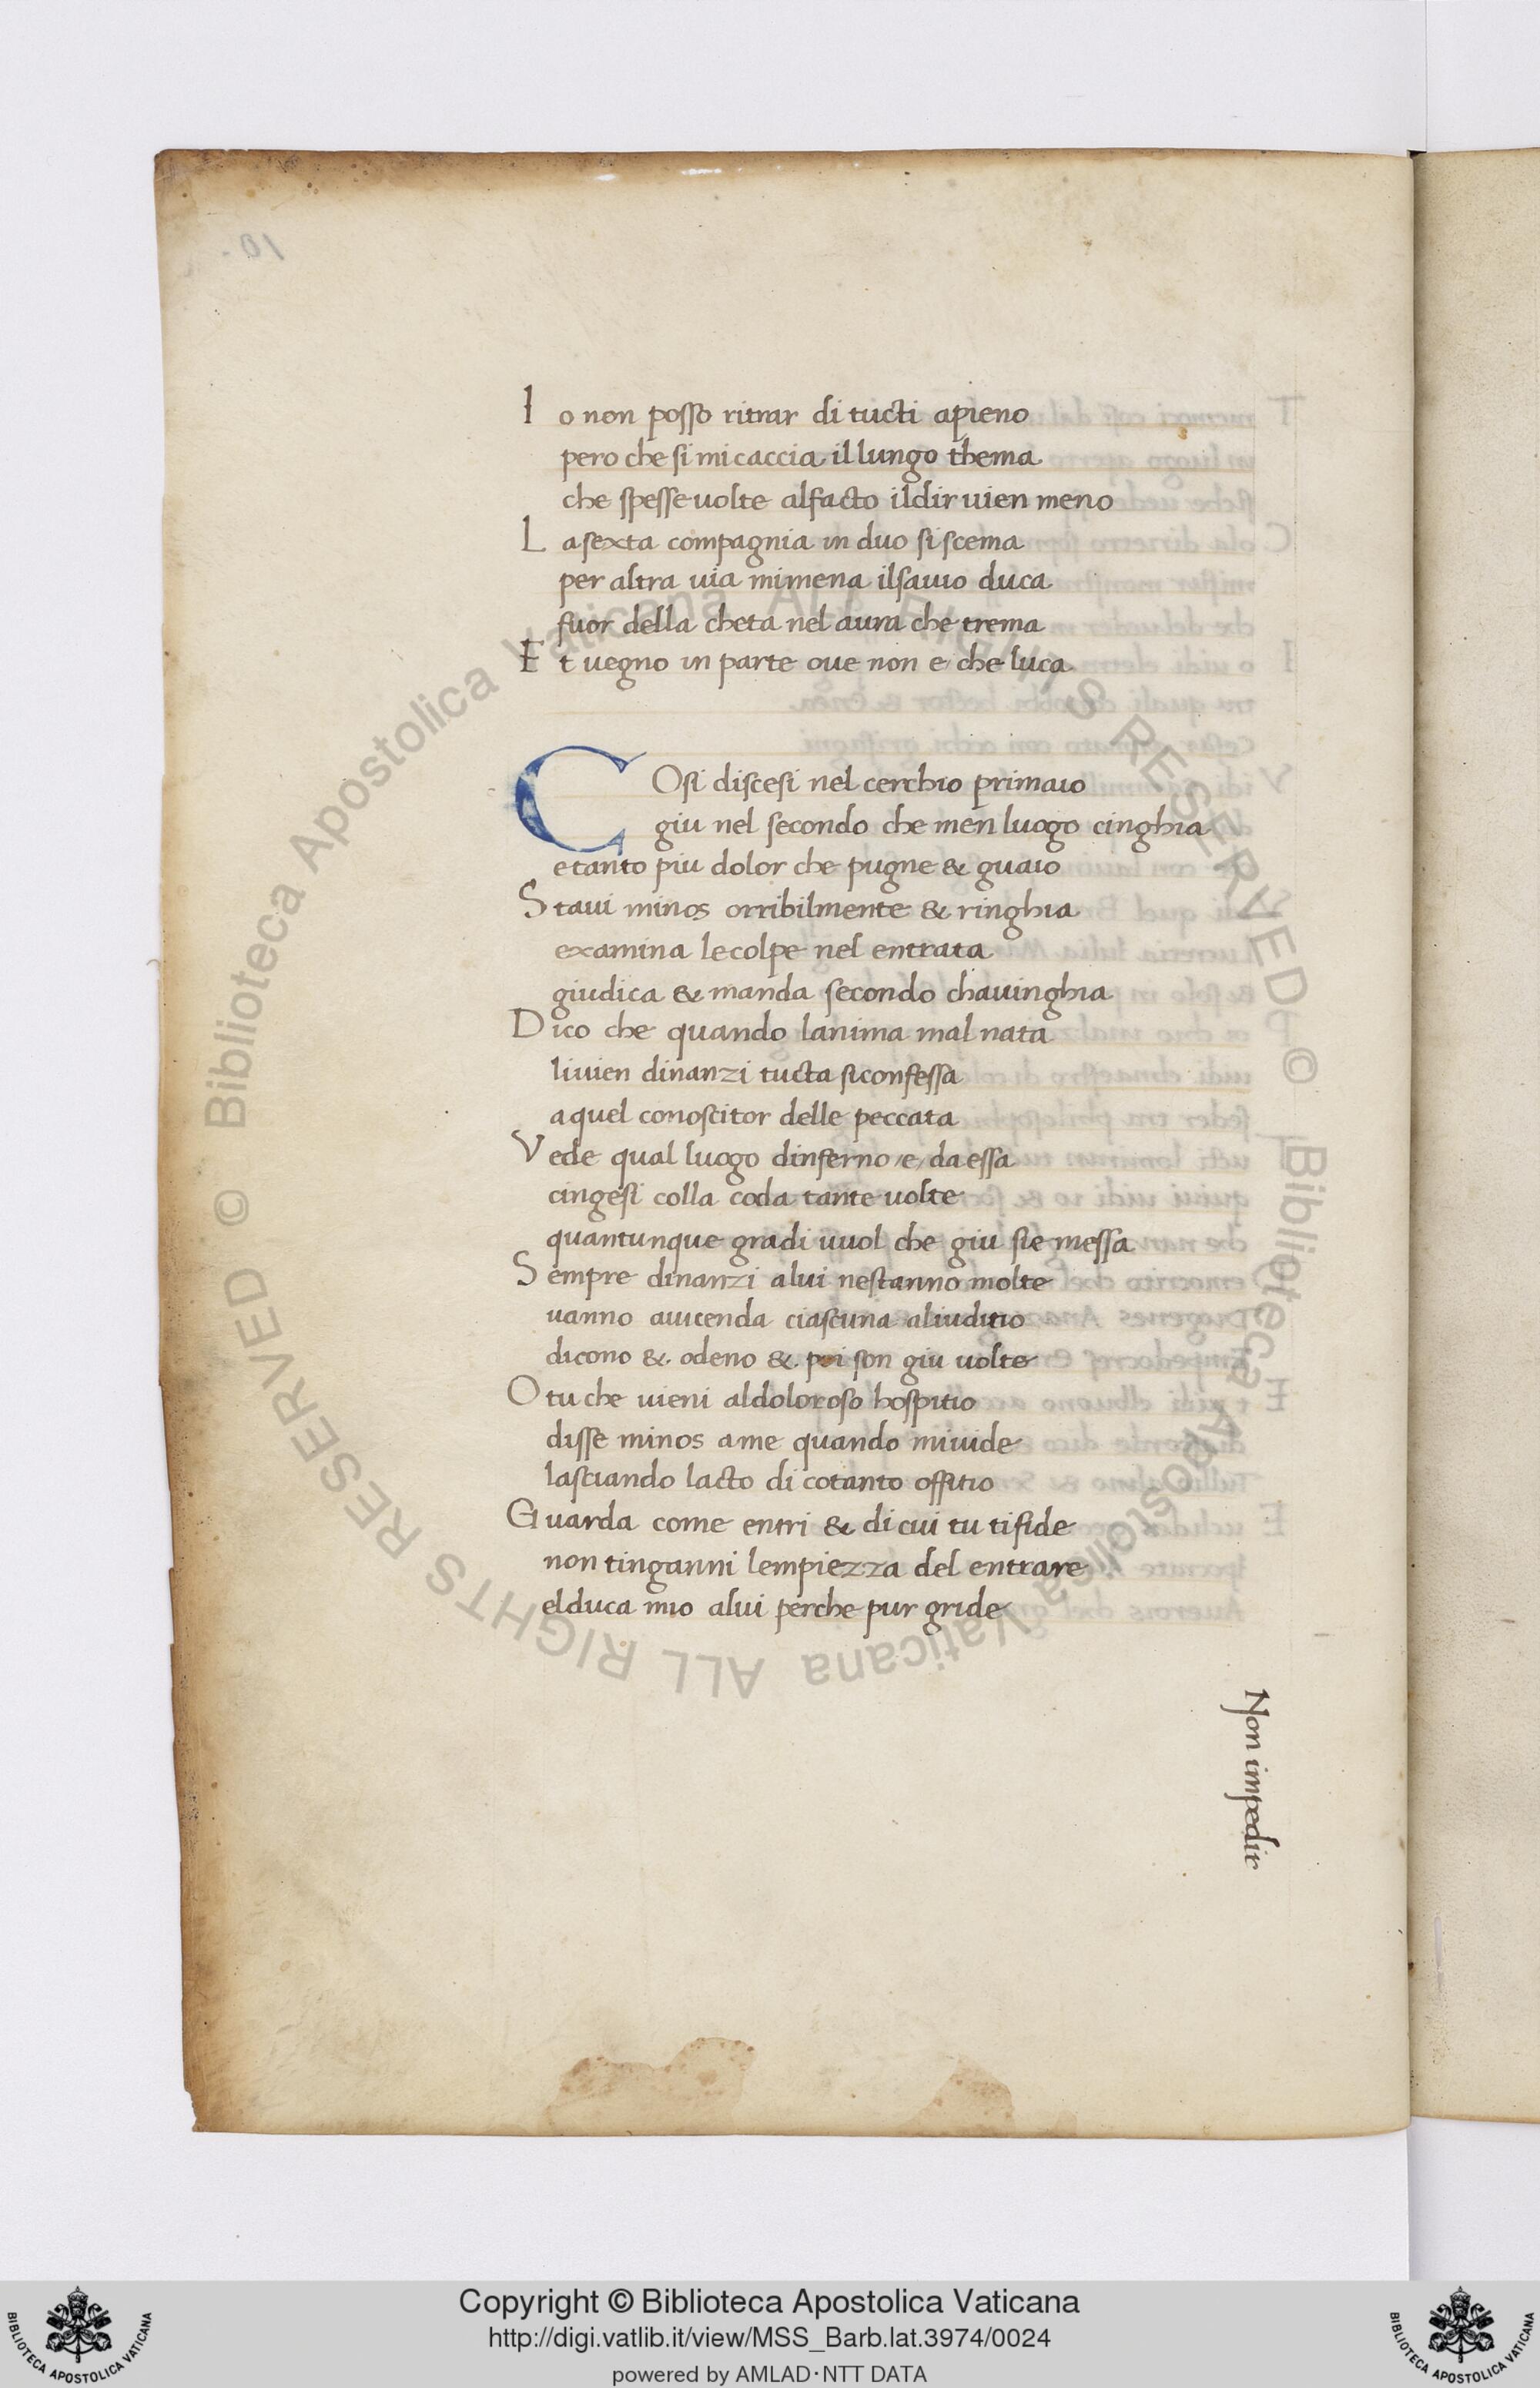 I o non posso ritrar di tucti apieno
pero che si mi caccia il lungo thema
che spesse uolte alfacto ildir uien meno
L a sexta compagnia in duo si scema
per altra uia mi mena ilsauio duca
fuor della cheta nel aura che trema
E t uegno in parte oue non e che luca
COsi discesi nel cerchio primaio
giu nel secondo che men luogo cinghia
e tanto piu dolor che pugne & guaio
S taui minos orribilmente & ringhia
examina le colpe nel entrata
giudica & manda secondo chauinghia
D ico che quando lanima mal nata
li uien dinanzi tucta si confessa
a quel conoscitor delle peccata
V ede qual luogo dinferno /e/ da essa
cingesi colla coda tante uolte
quantunque gradi uuol che giu sie messa
S empre dinanzi alui nestanno molte
uanno auicenda ciascuna aliuditio
dicono & odeno & poi son giu uolte
O tu che uieni aldoloroso hospitio
disse minos a me quando miuide
lasciando lacto di cotanto offitio
G uarda come entri & di cui tu tifide
non tinganni lempiezza del entrare
elduca mio alui perche pur gride
Non impedir
10.
© Biblioteca Apostolica Vaticana ALL RIGHTS RESERVED © Biblioteca Apostolica Vaticana ALL RIGHTS RESERVED
Copyright © Biblioteca Apostolica Vaticana
http://digi.vatlib.it/view/MSS_Barb.lat.3974/0024
powered by AMLAD·NTT DATA
BIBLIOTECA APOSTOLICA VATICANA
BIBLIOTECA APOSTOLICA VATICANA